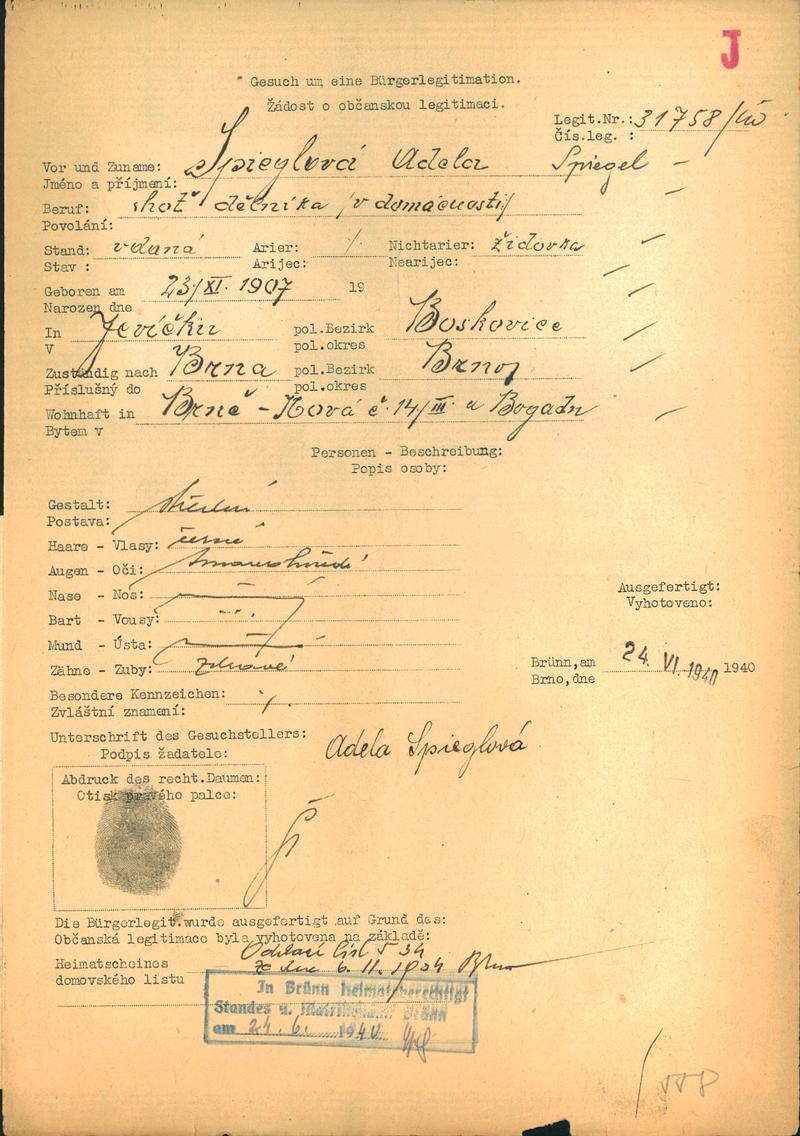 J
Gesuch um eine Bürgerlegitimation.
Žádost o občanskou legitimaci.
Legit.Nr.: 31758/
Čís.leg. :
Vor und Zuname: Spieglová Adela Spiegel –
Jméno a příjmení:
Beruf: choť dělníka /v domácnosti/
Povolání:
Stand: vdaná Arier: /. Nichtarier: židovka
Stav : Arijec: Nearijec:
Geboren am 23/XI. 1907 19
Narozen dne
In Jevíčku pol.Bezirk Boskovice
V pol.okres
Zuständig nach Brna pol.Bezirk Brno
Příslušný do pol.okres
Wohnhaft in Brně - Nová č. 14/III. u Bogatn
Bytem v
Personen - Beschreibung:
Popis osoby:
Gestalt: střední
Postava:
Haare - Vlasy: černé
Augen - Oči: tmavohnědé
Nase - Nos:
Bart - Vousy:
Mund - Ústa:
Zähne - Zuby: zdravé
Ausgefertigt:
Vyhotoveno:
Brünn,am 24. VI. 1940 1940
Brno,dne
Besondere Kennzeichen: /.
Zvláštní znamení:
Unterschrift des Gesuchstellers: Adela Spieglová
Podpis žadatele:
Abdruck des recht.Daumen:
Otisk pravého palce:
Die Bürgerlegit.wurde ausgefertigt auf Grund des:
Občanská legitimace byla vyhotovena na základě:
Heimatscheines
domovského listu ze dne 6. 11. 1934 Brno
In Brünn heimatberechtigt
Standes u. Matrikenamt Brünn
am 24. 6. 1940
558